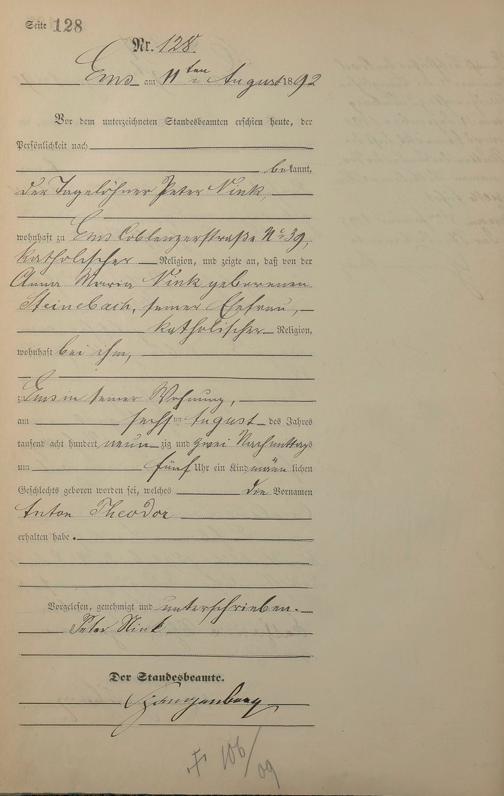 Seite 128
Nr. 128.
Ems am 11ten August 1892
Vor dem unterzeichneten Standesbeamten erschien heute, der
Persönlichkeit nach
bekannt,
der Tagelöhner Peter Nink
wohnhaft zu Ems Coblenzerstraße No 39,
katholischer Religion, und zeigte an, daß von der
Anna Maria Nink geborenen
Steinebach, seiner Ehefrau,
katholischer Religion,
wohnhaft bei ihm,
zu Ems in seiner Wohnung,
am sechsten August des Jahres
tausend acht hundert neunzig und zwei Nachmittags
um fünf Uhr ein Kind männlichen
Geschlechts geboren worden sei, welches die Vornamen
Anton Theodor
erhalten habe.
Vorgelesen, genehmigt und unterschrieben.
Peter Nink
Der Standesbeamte.
106/09